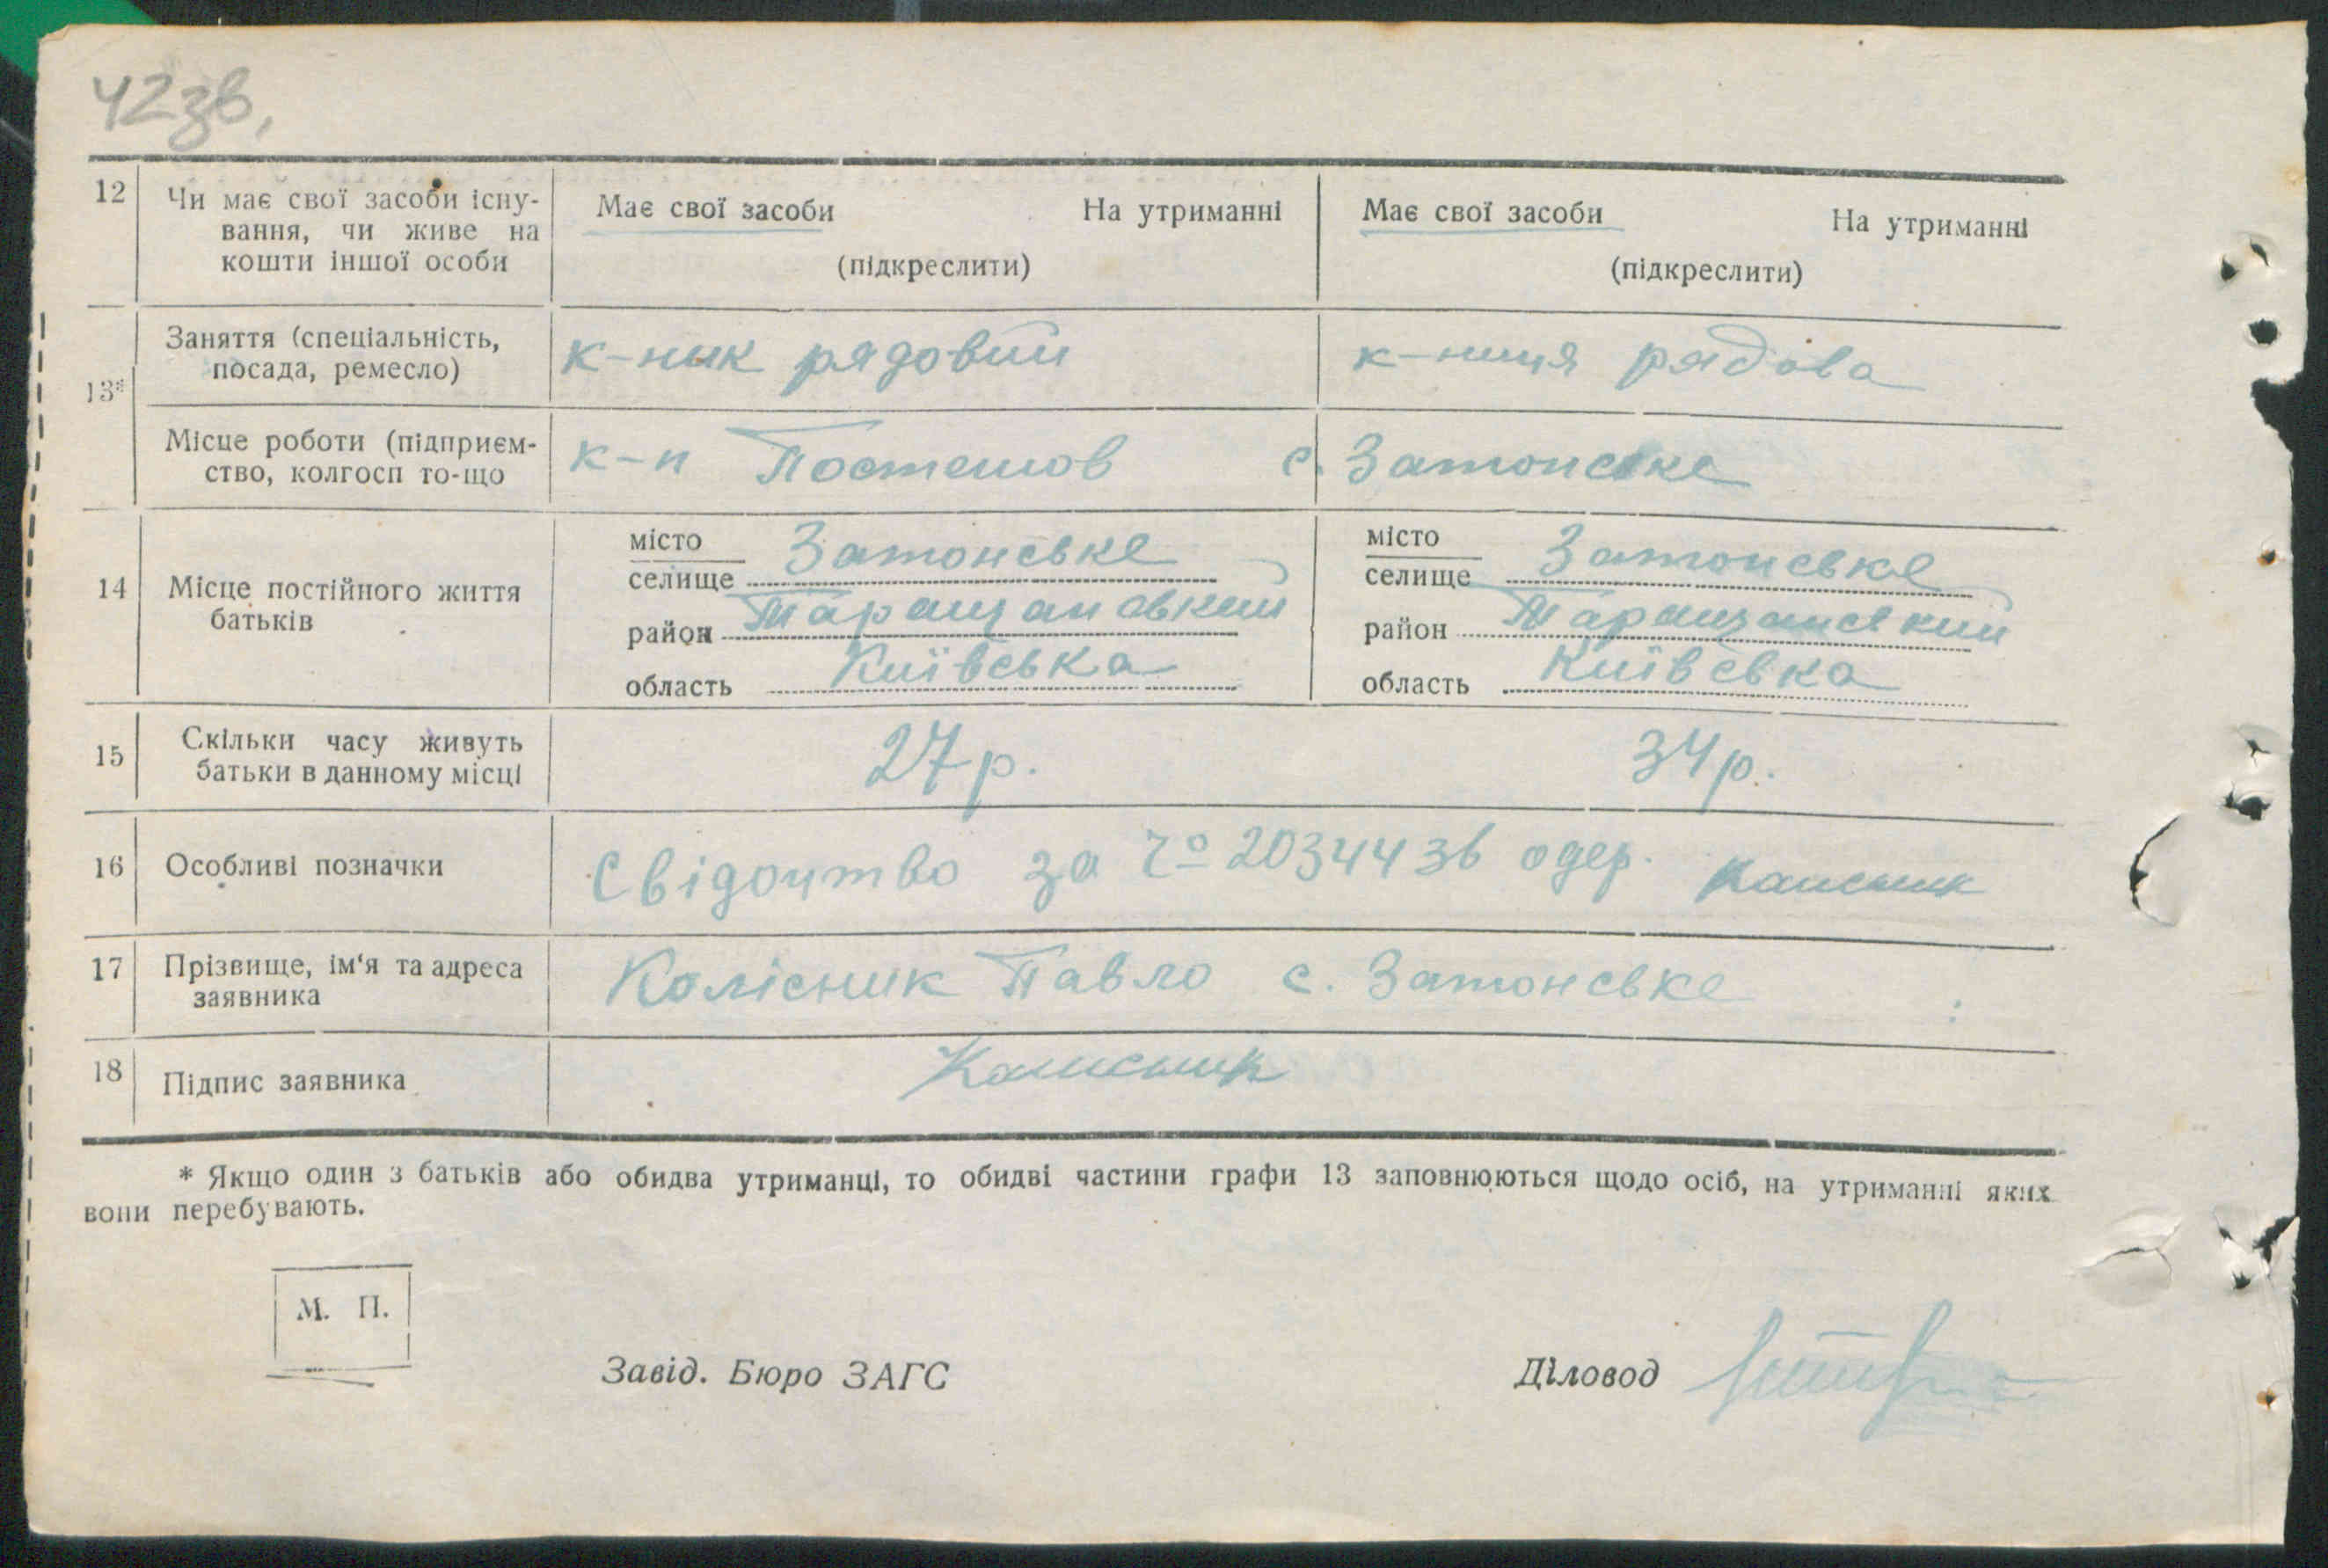 42зв,
12 Чи має свої засоби існу-
вання, чи живе на
кошти іншої особи
Має свої засоби На утриманні
(підкреслити)
Має свої засоби На утриманні
(підкреслити)
13*
Заняття (спеціальність,
посада, ремесло)
к-ник рядовий
к-ниця рядова
Місце роботи (підприєм-
ство, колгосп то-що
к-п Постешов с. Затонське
14 Місце постійного життя
батьків
місто
селище Затонське
район Таращанський
область Київська
місто
селище Затонське
район Таращанський
область Київська
15 Скільки часу живуть
батьки в данному місці
27р.
34р.
16 Особливі позначки
Свідоцтво за № 2034436 одер.
17 Прізвище, ім‘я та адреса
заявника
Колісник Павло с. Затонське
18 Підпис заявника
* Якщо один з батьків або обидва утриманці, то обидві частини графи 13 заповнюються щодо осіб, на утриманні яких
вони перебувають.
М. П.
Завід. Бюро ЗАГС
Діловод